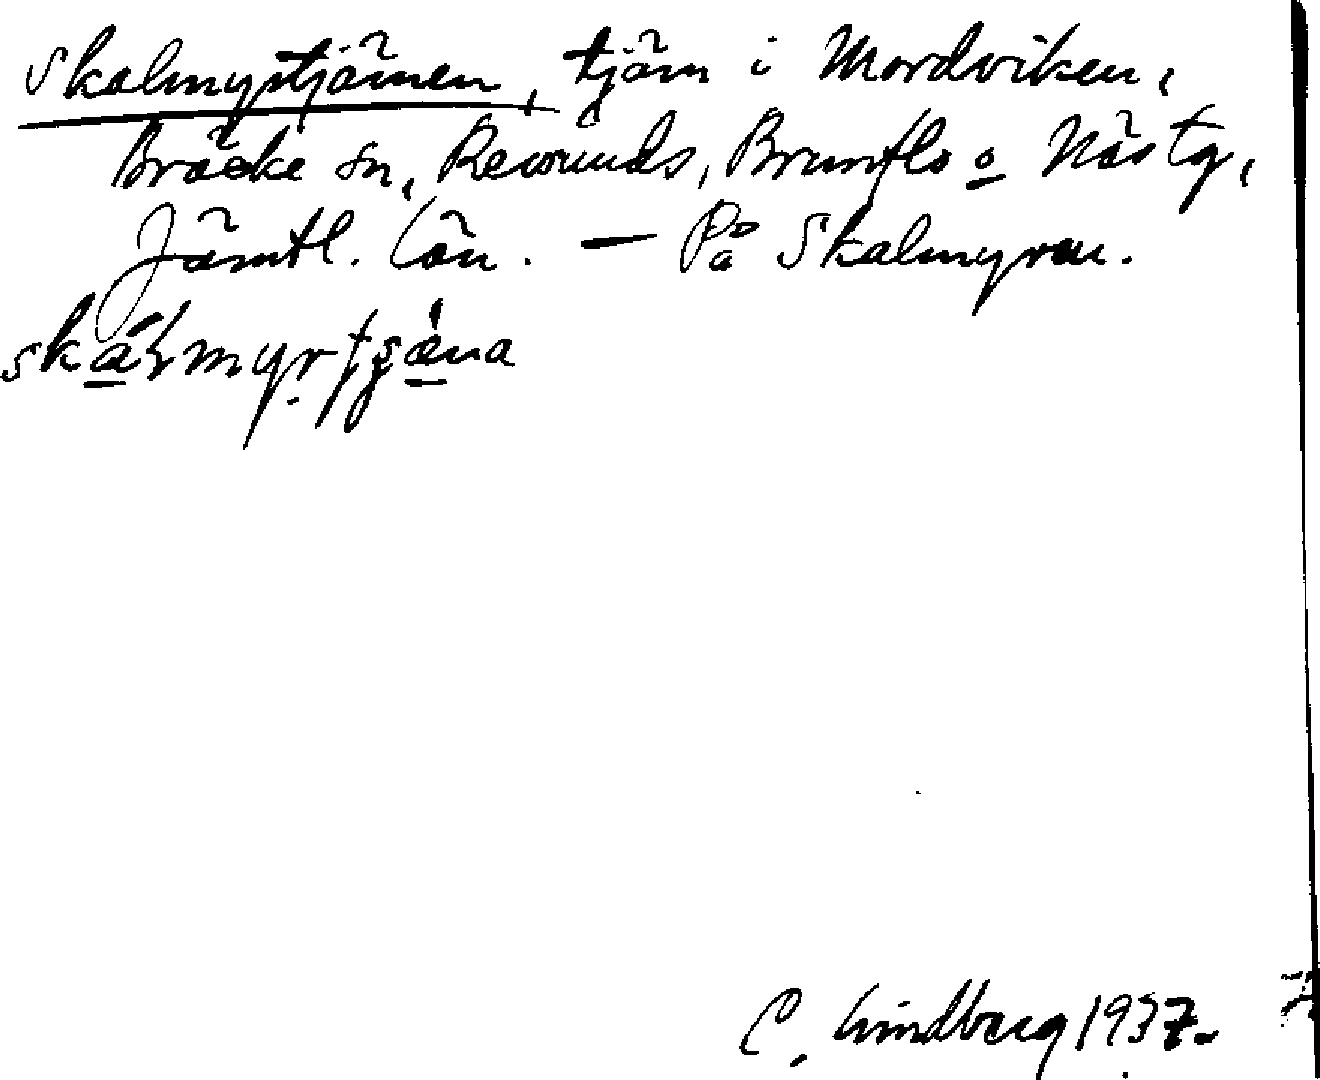 Skalmyrtjärnen, tjärn i Mordviken,
Bräcke sn, Revsunds, Brunflo o Näs tg,
Jämtl. län. — På Skalmyren.
C. Lindberg 1937.